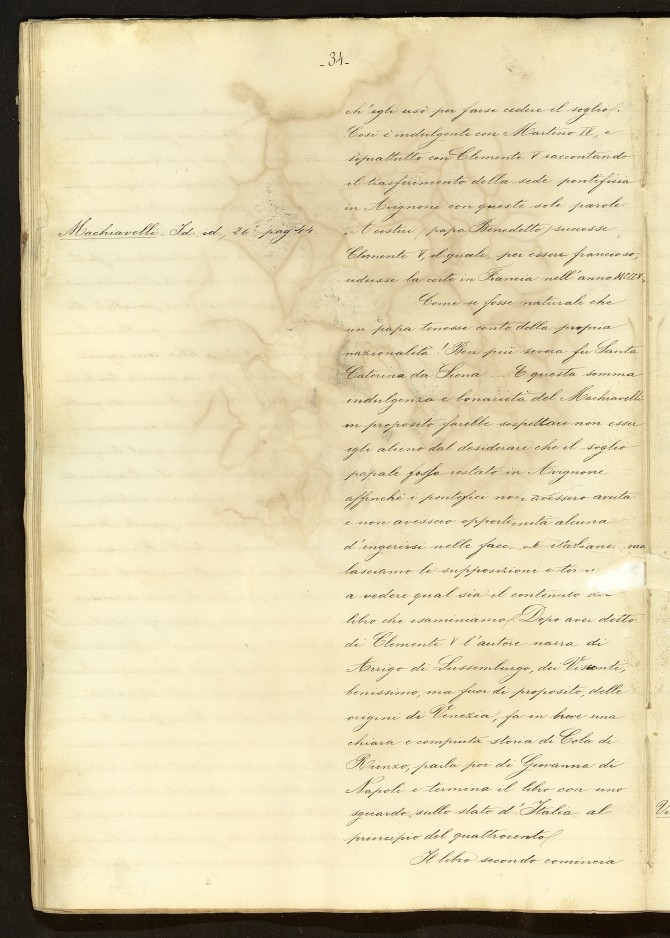 - 34 -
ch'egli usò per farsi cedere il soglio.
Così è indulgente con Martino IV, e
soprattutto con Clemente V raccontando
il trasferimento della sede pontificia
in Avignone con queste sole parole:
Machiavelli. Id. id., 26 pag 44
A costui (papa Benedetto) successe
Clemente V, il quale, per essere francioso,
ridusse la corte in Francia nell'anno MCCCV.
Come se fosse naturale che
un papa tenesse conto della propria
nazionalità! Ben più severa fu Santa
Caterina da Siena ... E questa somma
indulgenza e bonarietà del Machiavelli
in proposito farebbe sospettare non esser
egli alieno dal desiderare che il soglio
papale fosse restato in Avignone
affinché i pontefici non avessero avuta
e non avessero opportunità alcuna
d'ingerirsi nelle italiane, ma
lasciamo le supposizioni e
a vedere qual sia il contenuto
libro che esaminiamo. Dopo aver detto
di Clemente V l'autore narra di
Arrigo di Lussemburgo, dei Visconti,
benissimo, ma fuor di proposito, delle
origini di Venezia, fa in breve una
chiara e compiuta storia di Cola di
Rienzo, parla poi di Giovanna di
Napoli e termina il libro con uno
sguardo sullo stato d'Italia al
principio del quattrocento.
Il libro secondo comincia